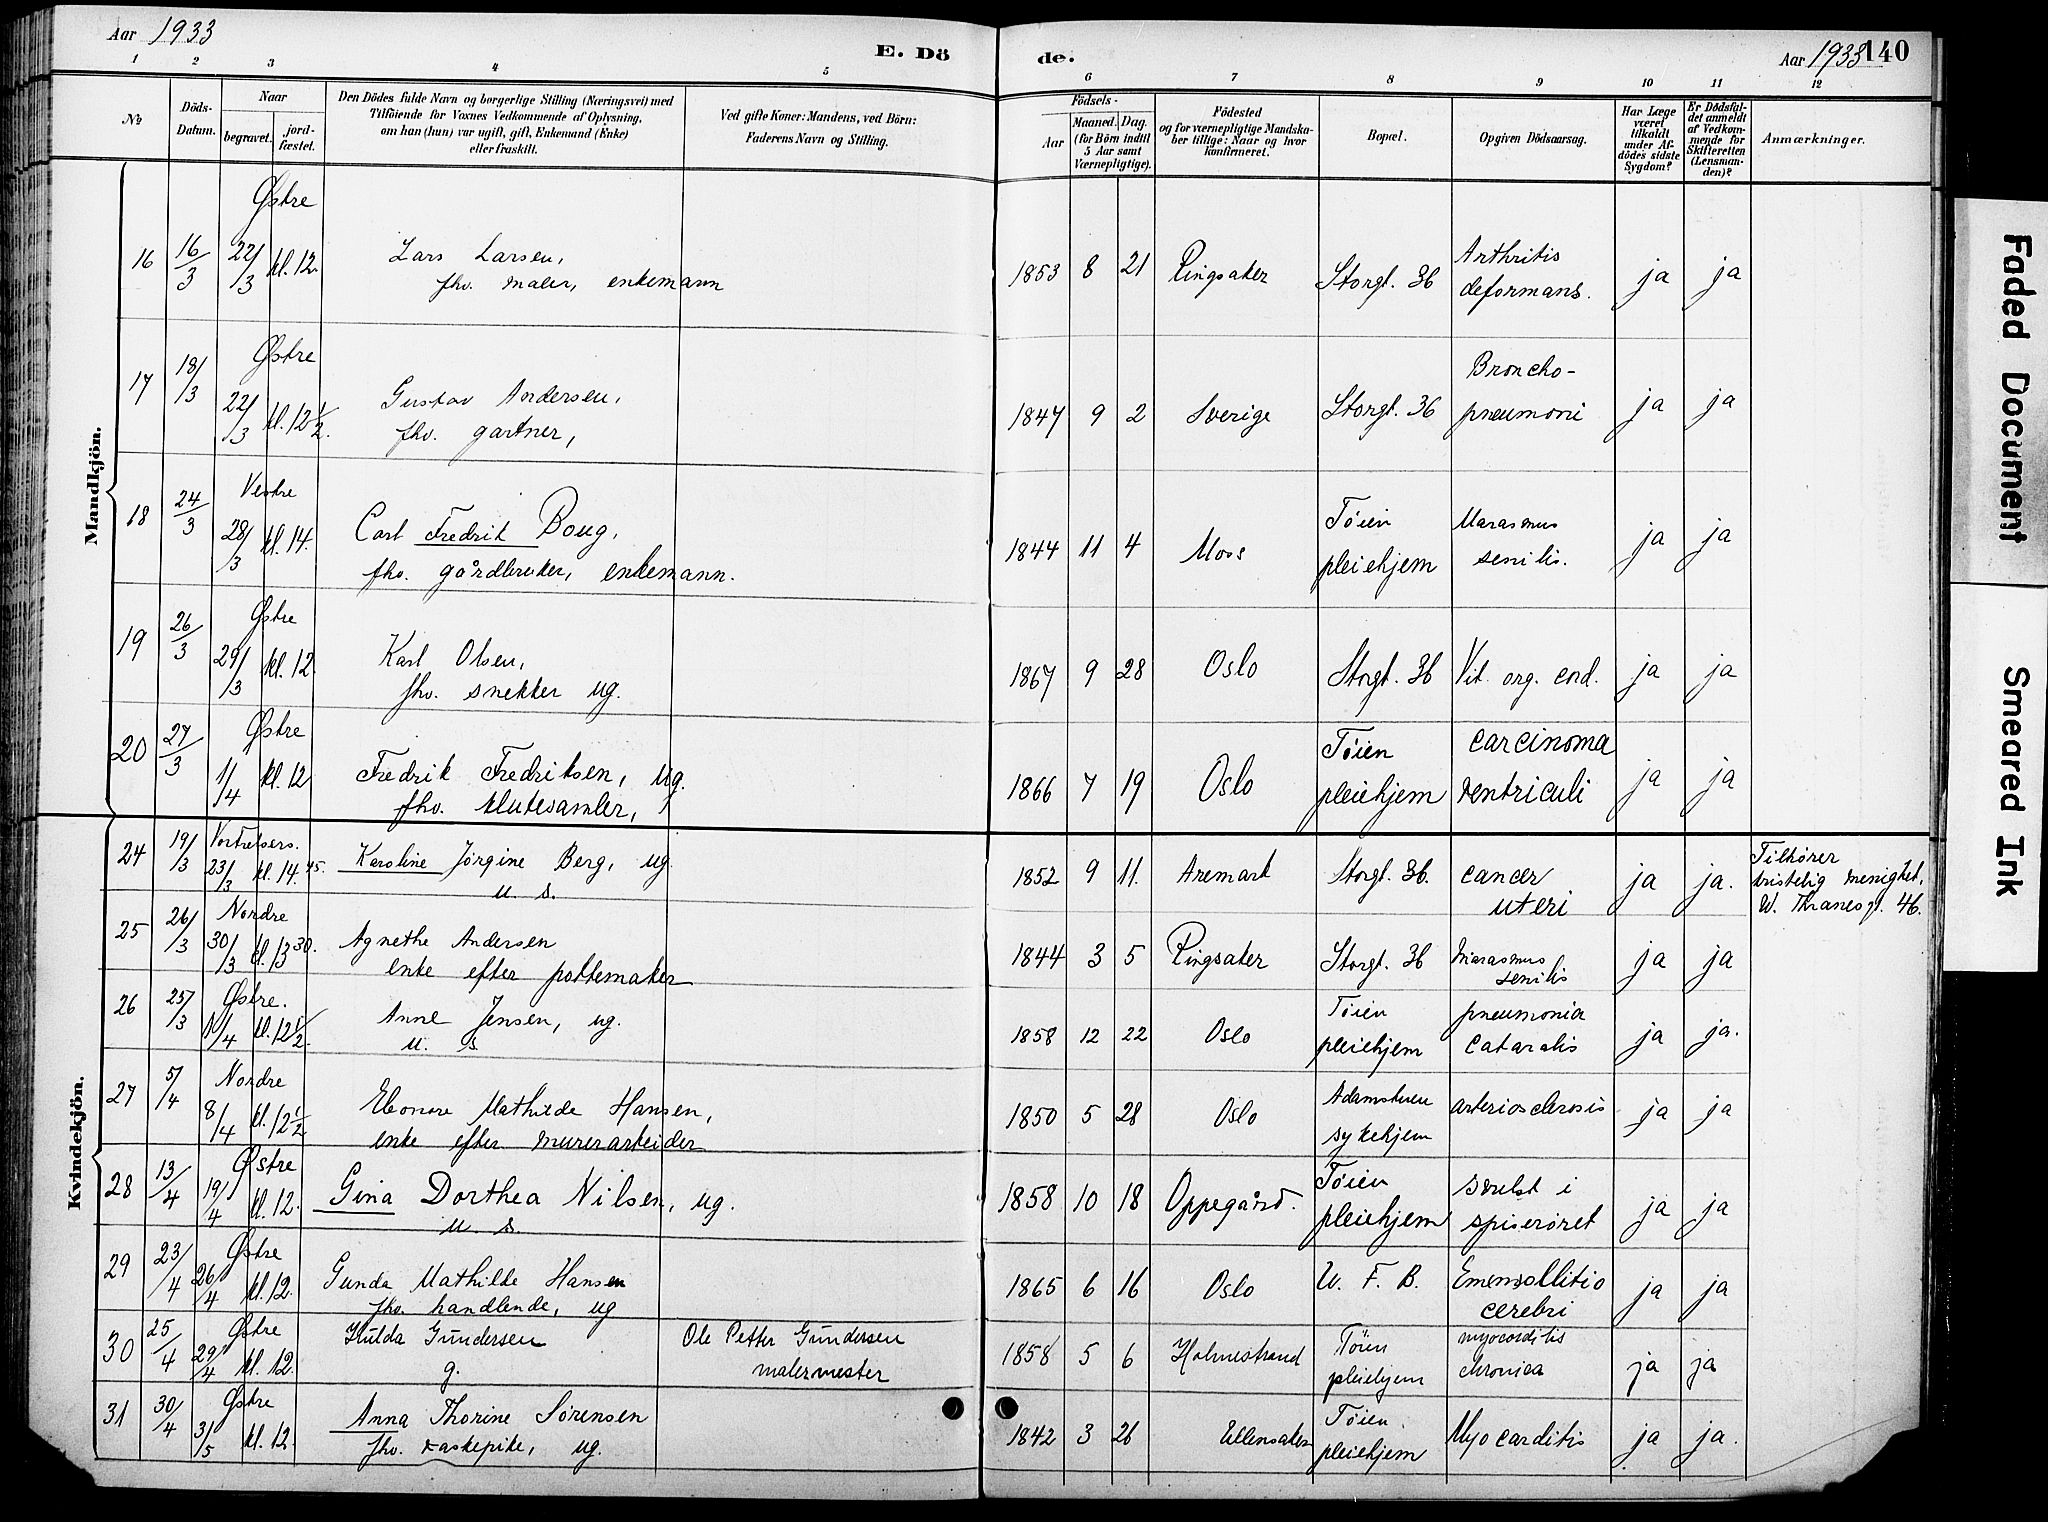 Aar 1933
E. Dö
de.
Aar 1933 140
1 2 3 4 5 6 7 8 9 10 11 12
No
Döds-
Datum.
Naar
begravet.
jord-
fæstet.
Den Dödes fulde Navn og borgerlige Stilling (Næringsvei) med
Tilföiende for Voxnes Vedkommende af Oplysning,
om han (hun) var ugift, gift, Enkemand (Enke)
eller fraskilt.
Ved gifte Koner: Mandens, ved Börn:
Faderens Navn og Stilling.
Födsels-
Aar
Maaned. Dag.
(for Börn indtil
5 Aar samt
Værnepligtige).
Födested
og for værnepligtige Mandska-
ber tillige: Naar og hvor
konfirmeret.
Bopæl.
Opgiven Dödsaarsag.
Har Læge
været
tilkaldt
under Af-
dödes sidste
Sygdom?
Er Dödsfal-
det anmeldt
af Vedkom-
mende for
Skifteretten
(Lensman-
den)?
Anmærkninger.
Mandkjön.
Østre
16 16/3 22/3 kl. 12. Lars Larsen,
fhv. maler, enkemann
1853 8 21 Ringsaker Storgt. 36 Arthritis
deformans. ja ja
Østre
17 18/3 22/3 kl. 12 1/2. Gustav Andersen,
fhv. gartner,
1847 9 2 Sverige Storgt. 36 Broncho-
pneumoni ja ja
Vestre
18 24/3 28/3 kl. 14. Carl Fredrik Boug,
fhv. gårdbruker, enkemann.
1844 11 4 Moss Tøien
pleiehjem Marasmus
senilis. ja ja
Østre
19 26/3 29/3 kl. 12. Karl Olsen,
fhv. snekker ug.
1867 9 28 Oslo Storgt. 36 Vit. org. cord. ja ja
Østre
20 27/3 1/4 kl. 12 Fredrik Fredriksen, ug.
fhv. klutesamler,
1866 7 19 Oslo Tøien
pleiehjem carcinoma
ventriculi ja ja
Kvindekjön.
24 19/3 23/3 kl. 14.45. Karoline Jørgine Berg, ug.
u. s.
1852 9 11. Aremark Storgt. 36. cancer
uteri ja ja. Tilhører
kristelig menighet,
W. Thranesgt. 46.
Nordre
25 26/3 30/3 kl. 13 30. Agnethe Andersen
enke efter pottemaker
1844 3 5 Ringsaker Storgt. 36 marasmus
senilis ja ja
Østre.
26 25/3 1/4 kl. 12 1/2. Anne Jensen, ug.
u. s
1858 12 22 Oslo Tøien
pleiehjem pneumonia
cataralis ja ja.
Nordre
27 5/4 8/4 kl. 12 1/2 Eleonore Mathilde Hansen,
enke efter murerarbeider
1850 5 28 Oslo Adamstuen
sykehjem arteriosclerosis ja ja
Østre
28 13/4 19/4 kl. 12. Gina Dorthea Nilsen, ug.
u. s.
1858 10 18 Oppegård. Tøien
pleiehjem svulst i
spiserøret ja ja
Østre
29 23/4 26/4 kl. 12. Gunda Mathilde Hansen
fhv. handlende, ug
1865 6 16 Oslo W. F. B. Emensollitio
cerebri ja ja
Østre
30 25/4 29/4 kl. 12. Hulda Gundersen
g.
Ole Petter Gundersen
malermester
1858 5 6 Holmestrand Tøien
pleiehjem myocarditis
chronica ja ja
Østre
31 30/4 3/5 kl. 12. Anna Thorine Sørensen
fhv. vaskepike, ug.
1842 3 26 Ullensaker Tøien
pleiehjem Myocarditis ja ja.
Faded Document
Smeared Ink